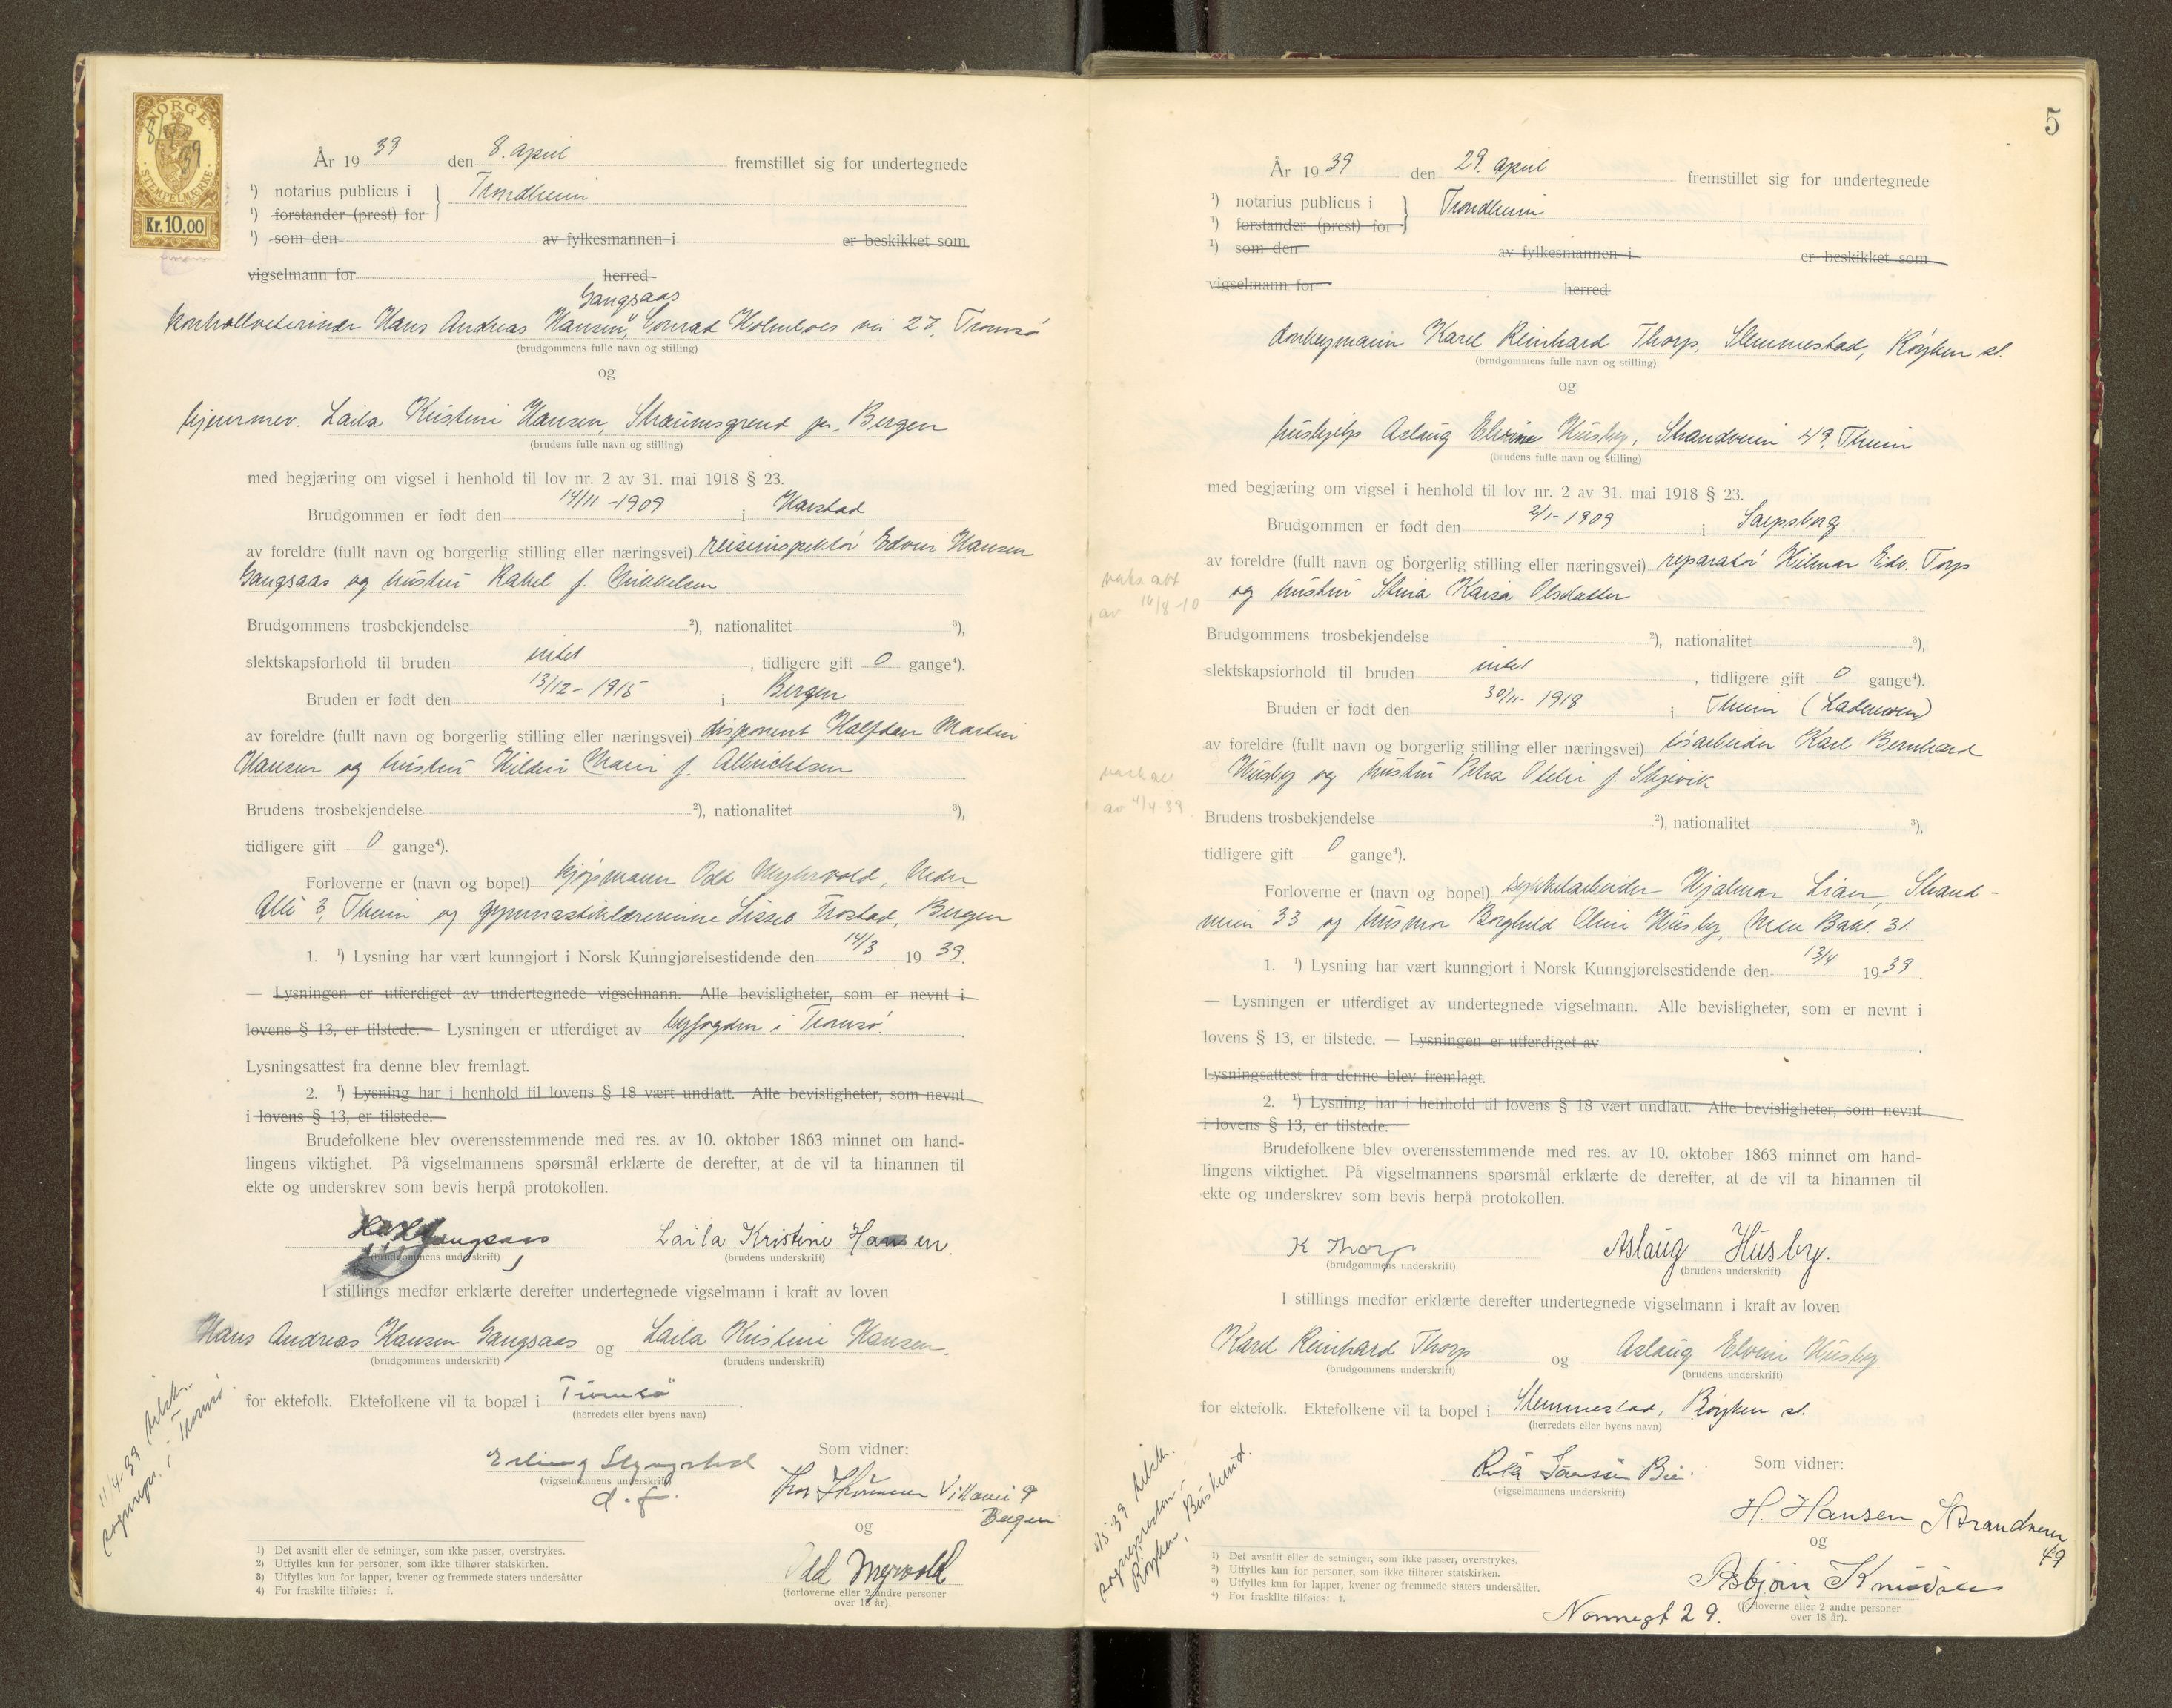 NORGE
8/4 39
STEMPELMÆRKE
Kr. 10.00
År 19 39 den 8. april fremstillet sig for undertegnede
¹) notarius publicus i Trondheim
¹) forstander (prest) for
¹) som den av fylkesmannen i er beskikket som
vigselmann for herred
Gangsaas
kontrollveterinær Hans Andreas Hansen, Conrad Holmboes vei 27, Tromsø
(brudgommens fulle navn og stilling)
og
hjemmev. Laila Kristine Hansen, Straumsgrend pr. Bergen
(brudens fulle navn og stilling)
med begjæring om vigsel i henhold til lov nr. 2 av 31. mai 1918 § 23.
Brudgommen er født den 14/11 -1909 i Harstad
av foreldre (fullt navn og borgerlig stilling eller næringsvei) reiseinspektør Edvin Hansen
Gangsaas og hustru Rakel f. Mikkelsen
Brudgommens trosbekjendelse ²), nationalitet ³),
slektskapsforhold til bruden intet, tidligere gift 0 gange⁴).
Bruden er født den 13/12 - 1915 i Bergen
av foreldre (fullt navn og borgerlig stilling eller næringsvei) disponent Halfdan Martin
Hansen og hustru Hildur Marie f. Albrichtsen
Brudens trosbekjendelse ²), nationalitet ³),
tidligere gift 0 gange⁴).
Forloverne er (navn og bopel) kjøpmann Odd Myhrvold, Nedre
Allé 3, Theim og gymnastiklærerinne Lisseb Trostad, Bergen
1. ¹) Lysning har vært kunngjort i Norsk Kunngjørelsestidende den 14/3 19 39.
— Lysningen er utferdiget av undertegnede vigselmann. Alle bevisligheter, som er nevnt i
lovens § 13, er tilstede. — Lysningen er utferdiget av byfogden i Tromsø.
Lysningsattest fra denne blev fremlagt.
2. ¹) Lysning har i henhold til lovens § 18 vært undlatt. Alle bevisligheter, som nevnt
i lovens § 13, er tilstede.
Brudefolkene blev overensstemmende med res. av 10. oktober 1863 minnet om hand-
lingens viktighet. På vigselmannens spørsmål erklærte de derefter, at de vil ta hinannen til
ekte og underskrev som bevis herpå protokollen.
Gangsaas Laila Kristine Hansen.
(brudgommens underskrift) (brudens underskrift)
I stillings medfør erklærte derefter undertegnede vigselmann i kraft av loven
Hans Andreas Hansen Gangsaas og Laila Kristine Hansen.
(brudgommens underskrift) (brudens underskrift)
for ektefolk. Ektefolkene vil ta bopæl i Tromsø.
(herredets eller byens navn)
11/4-39 tilskr.
sognepr. i Tromsø.
Som vidner:
Erling
(vigselmannens underskrift)
d. f.
Villavei 9
Bergen
og
Odd Myrvold
(forloverne eller 2 andre personer
over 18 år).
1) Det avsnitt eller de setninger, som ikke passer, overstrykes.
2) Utfylles kun for personer, som ikke tilhører statskirken.
3) Utfylles kun for lapper, kvener og fremmede staters undersåtter
4) For fraskilte tilføies: f.
5
År 19 39 den 29. april fremstillet sig for undertegnede
¹) notarius publicus i Trondheim
¹) forstander (prest) for
¹) som den av fylkesmannen i er beskikket som
vigselmann for herred
donkeymann Karel Reinhard Thorp, Slemmestad, Røyken st.
(brudgommens fulle navn og stilling)
og
hushjelp Aslaug Elvine Husby, Strandveien 49, Theim
(brudens fulle navn og stilling)
med begjæring om vigsel i henhold til lov nr. 2 av 31. mai 1918 § 23.
Brudgommen er født den 2/1- 1909 i Sarpsborg
av foreldre (fullt navn og borgerlig stilling eller næringsvei) reparatør Hilmar Edv. Torp
og hustru Stina Kaisa Olsdatter
vaks att
av 16/8-10
Brudgommens trosbekjendelse ²), nationalitet ³),
slektskapsforhold til bruden intet, tidligere gift 0 gange⁴).
Bruden er født den 30/11- 1918 i Theim (Lademoen)
av foreldre (fullt navn og borgerlig stilling eller næringsvei) løsarbeider Karl Bernhard
Husby og hustru Petra Otelie f. Skjevik
vaks att
av 4/4 39.
Brudens trosbekjendelse ²), nationalitet ³),
tidligere gift 0 gange⁴).
Forloverne er (navn og bopel) sykkelarbeider Hjalmar Lian, Strand-
veien 33 og husmor Borghild Oline Husby, Nedre Bakl. 31.
1. ¹) Lysning har vært kunngjort i Norsk Kunngjørelsestidende den 13/4 19 39.
— Lysningen er utferdiget av undertegnede vigselmann. Alle bevisligheter, som er nevnt i
lovens § 13, er tilstede. — Lysningen er utferdiget av
Lysningsattest fra denne blev fremlagt.
2. ¹) Lysning har i henhold til lovens § 18 vært undlatt. Alle bevisligheter, som nevnt
i lovens § 13, er tilstede.
Brudefolkene blev overensstemmende med res. av 10. oktober 1863 minnet om hand-
lingens viktighet. På vigselmannens spørsmål erklærte de derefter, at de vil ta hinannen til
ekte og underskrev som bevis herpå protokollen.
K Thorp Aslaug Husby.
(brudgommens underskrift) (brudens underskrift)
I stillings medfør erklærte derefter undertegnede vigselmann i kraft av loven
Karel Reinhard Thorp og Aslaug Elvine Husby
(brudgommens underskrift) (brudens underskrift)
for ektefolk. Ektefolkene vil ta bopel i Slemmestad, Røyken st.
(herredets eller byens navn)
1/5 39 tilskr.
sognepresten i
Røyken, Buskerud.
Som vidner:
(vigselmannens underskrift)
H. Hansen Strandveien
49
og
Asbjørn Knudsen
(forloverne eller 2 andre personer
over 18 år).
Nonnegt 29.
¹) Det avsnitt eller de setninger, som ikke passer, overstrykes.
²) Utfylles kun for personer, som ikke tilhører statskirken.
³) Utfylles kun for lapper, kvener og fremmede staters undersåtter.
⁴) For fraskilte tilføies: f.